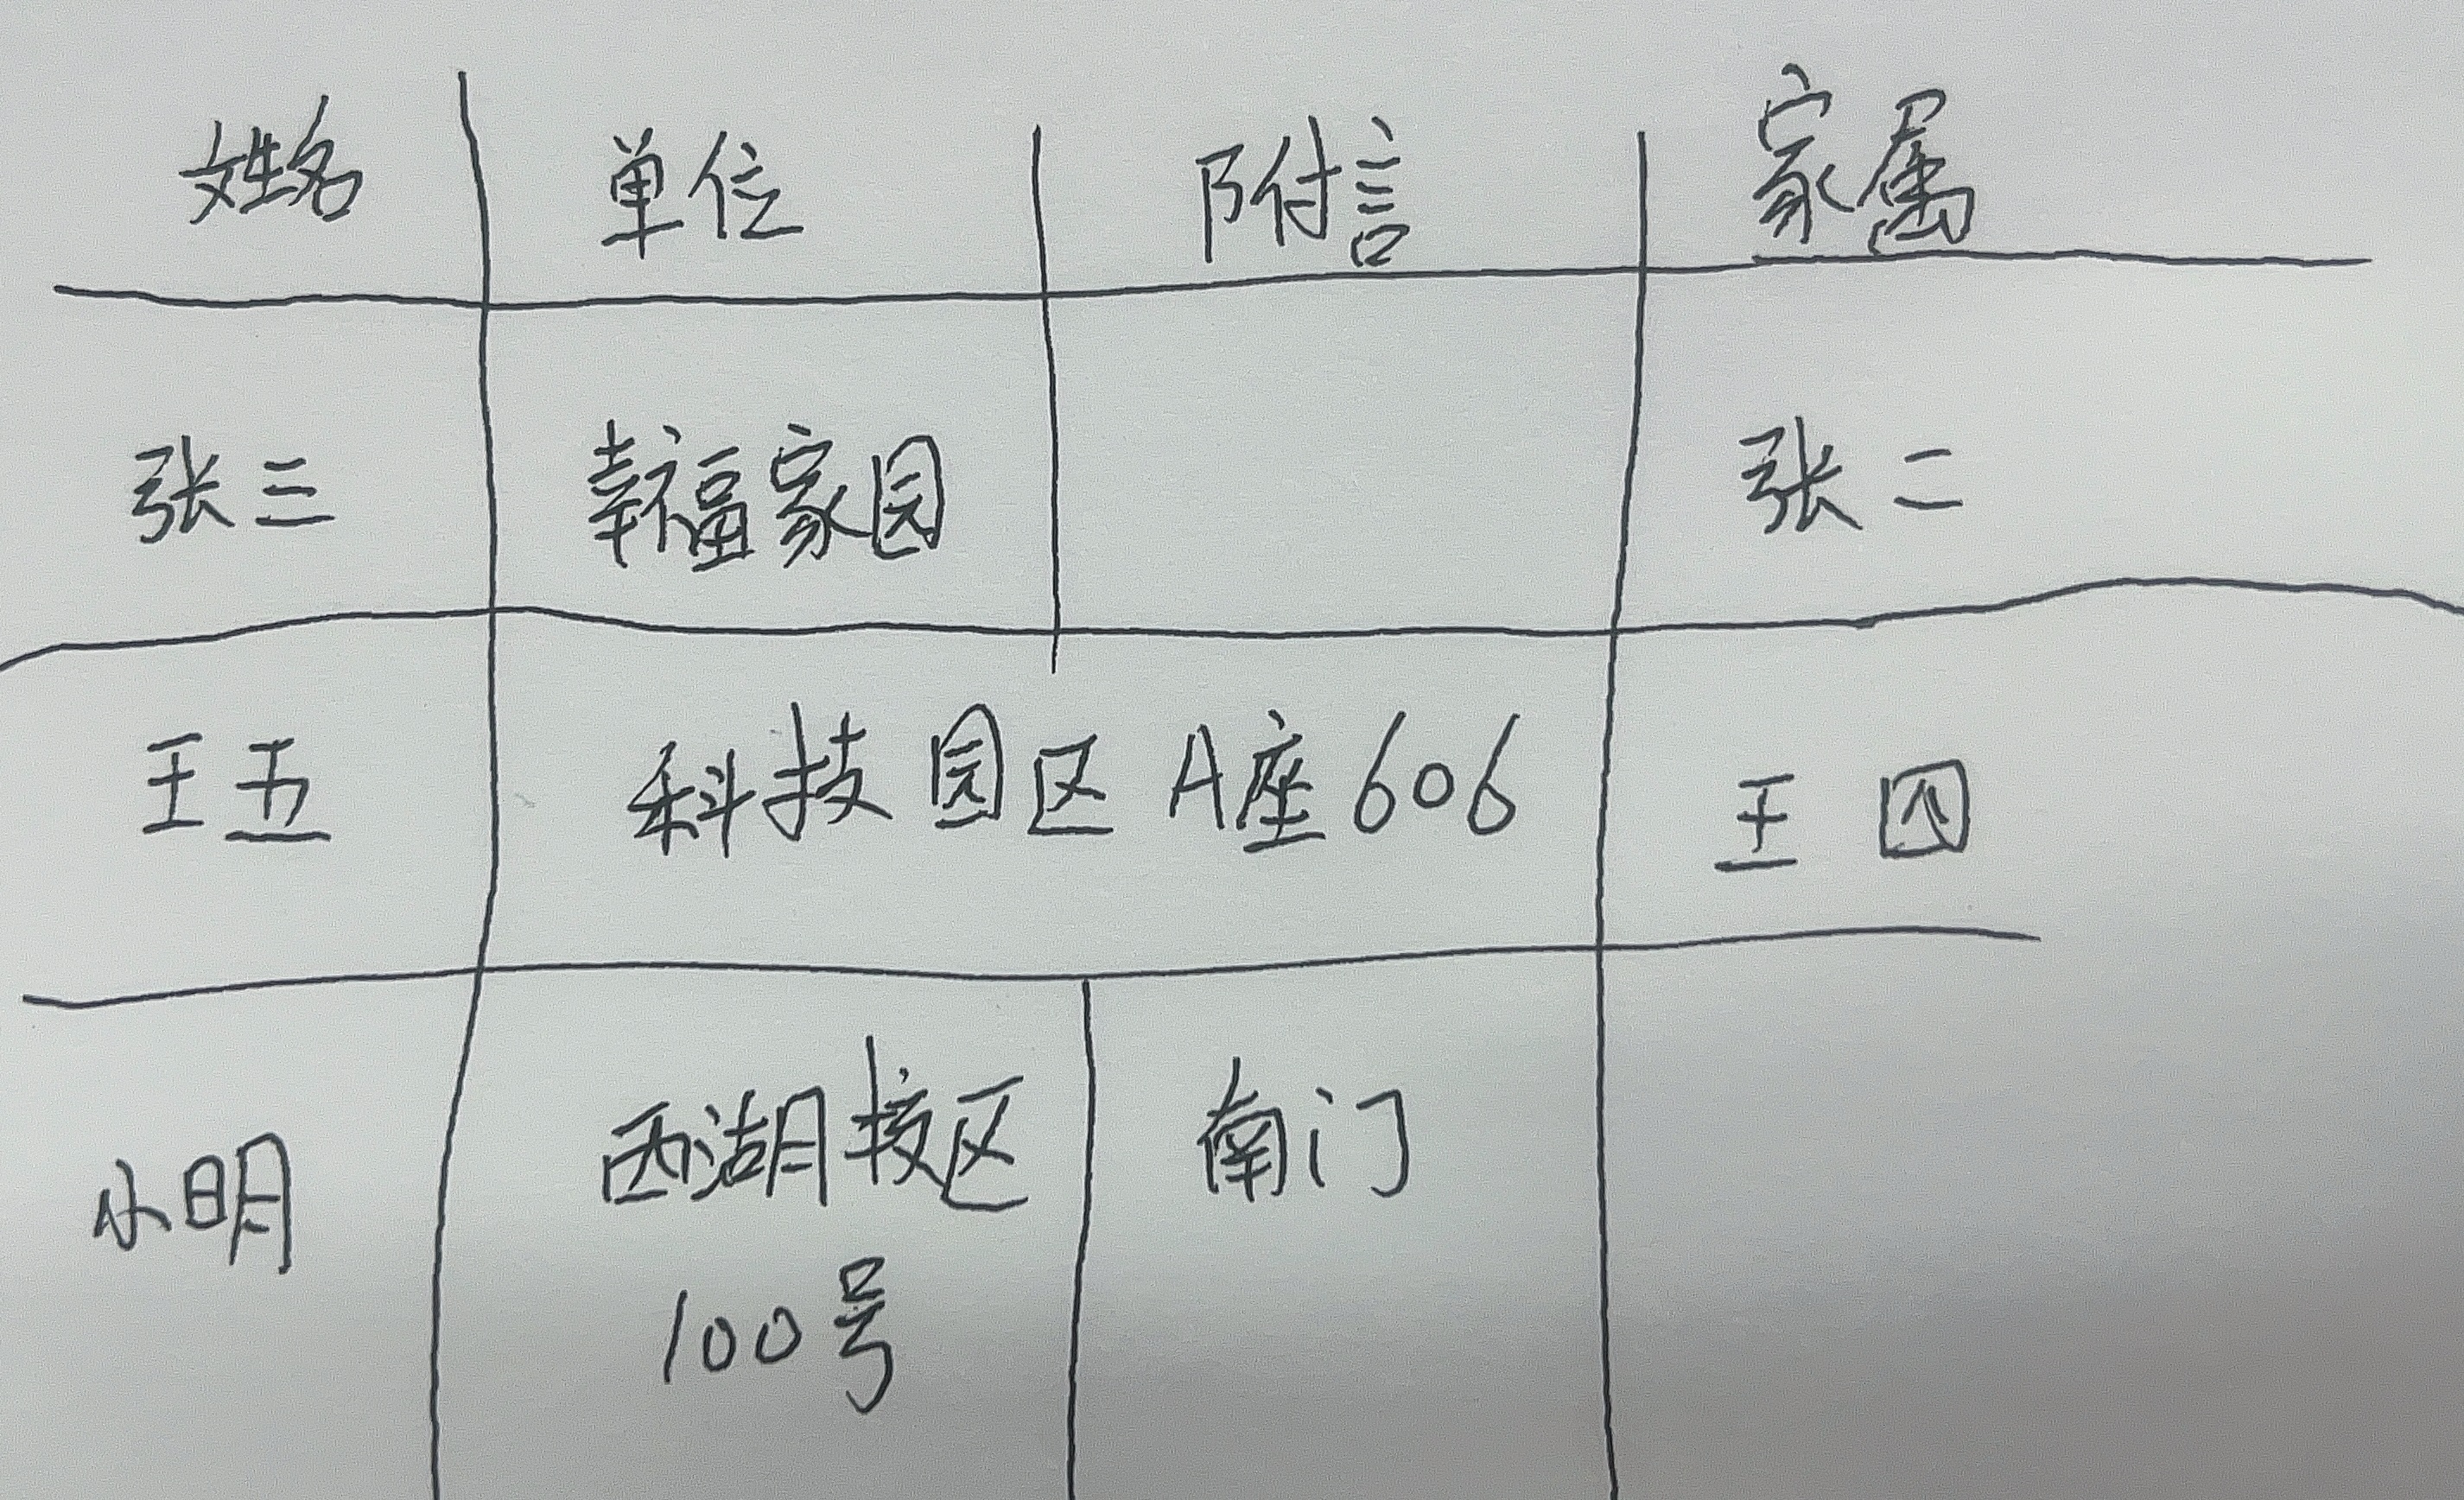 姓名 单位 附言 家属
张三 幸福家园 张二
王五 科技园区A座606 王囚
小明 西湖校区 南门
100号